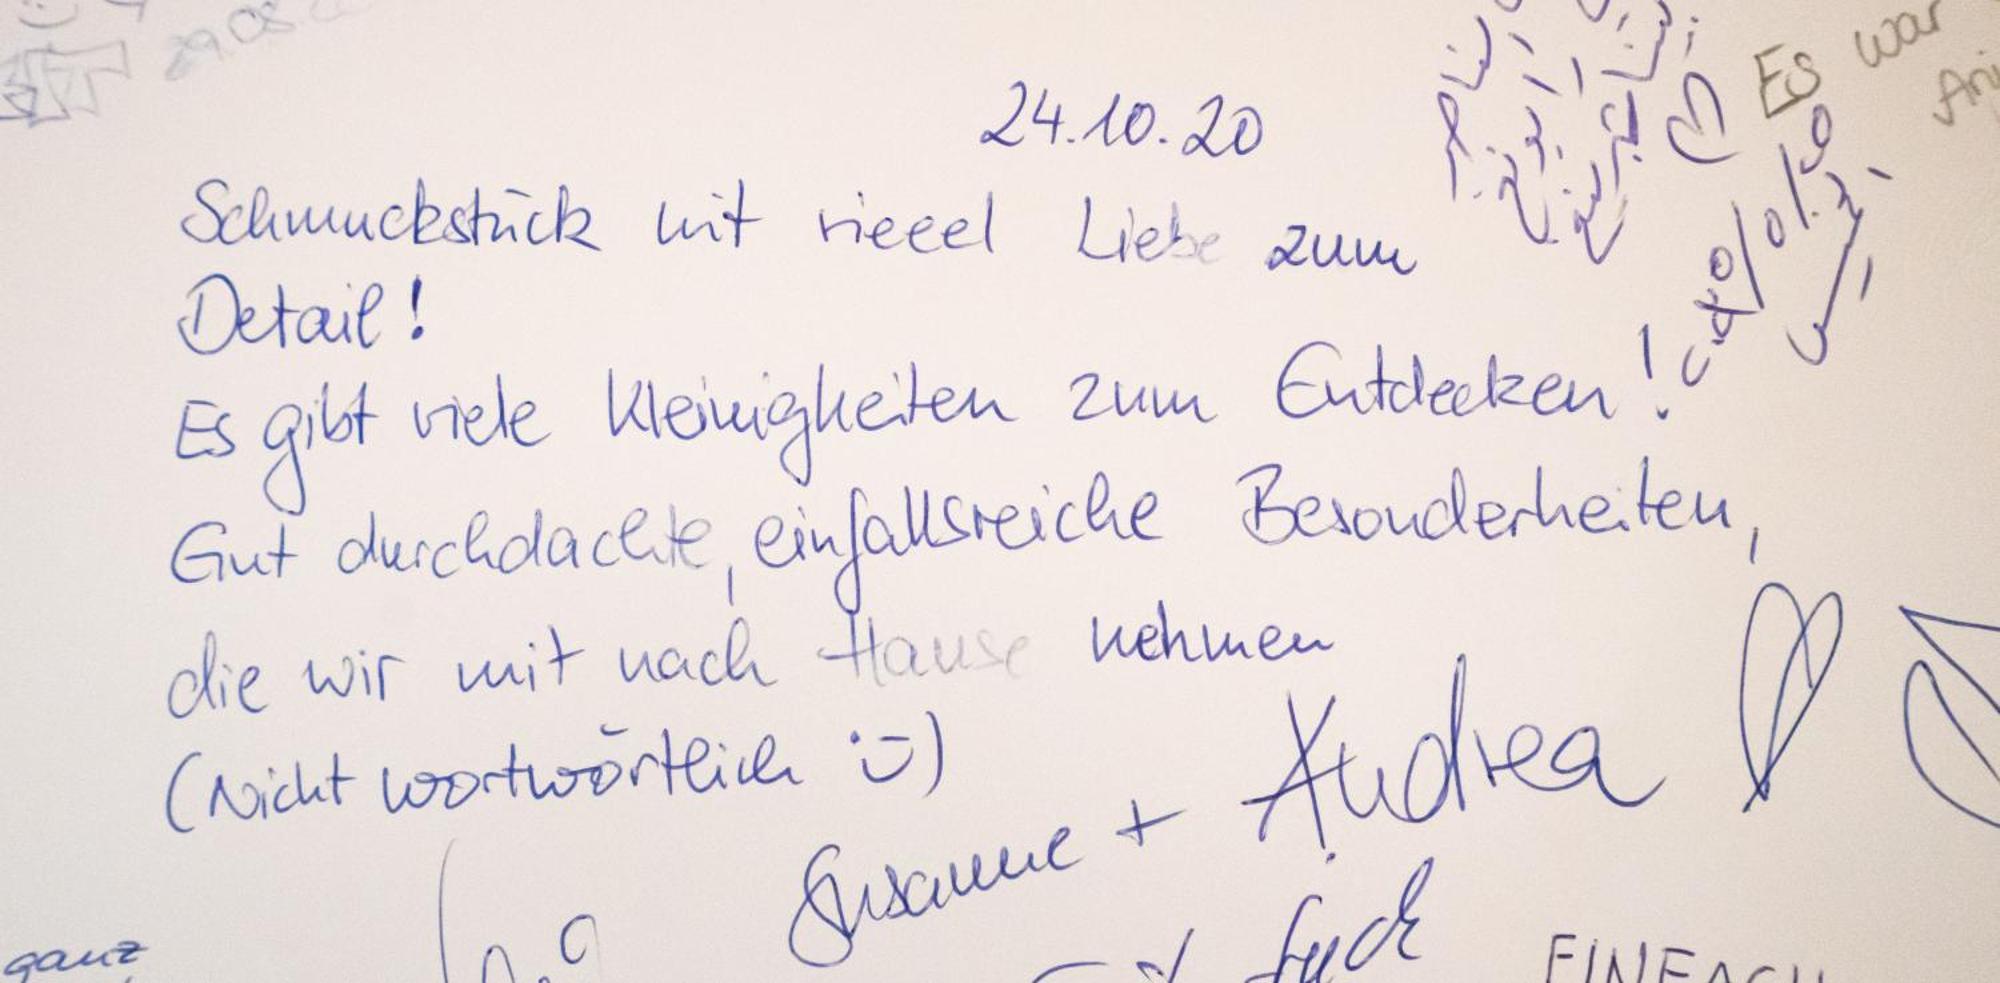 29.08
Es war
24.10.20
Schmuckstück mit vieeel Liebe zum
Detail!
Es gibt viele Kleinigkeiten zum Entdecken!
Gut durchdachte, einfallsreiche Besonderheiten,
die wir mit nach Hause nehmen
(Nicht wortwörtlich :-))
Susanne + Andrea
ganz
EINFACH